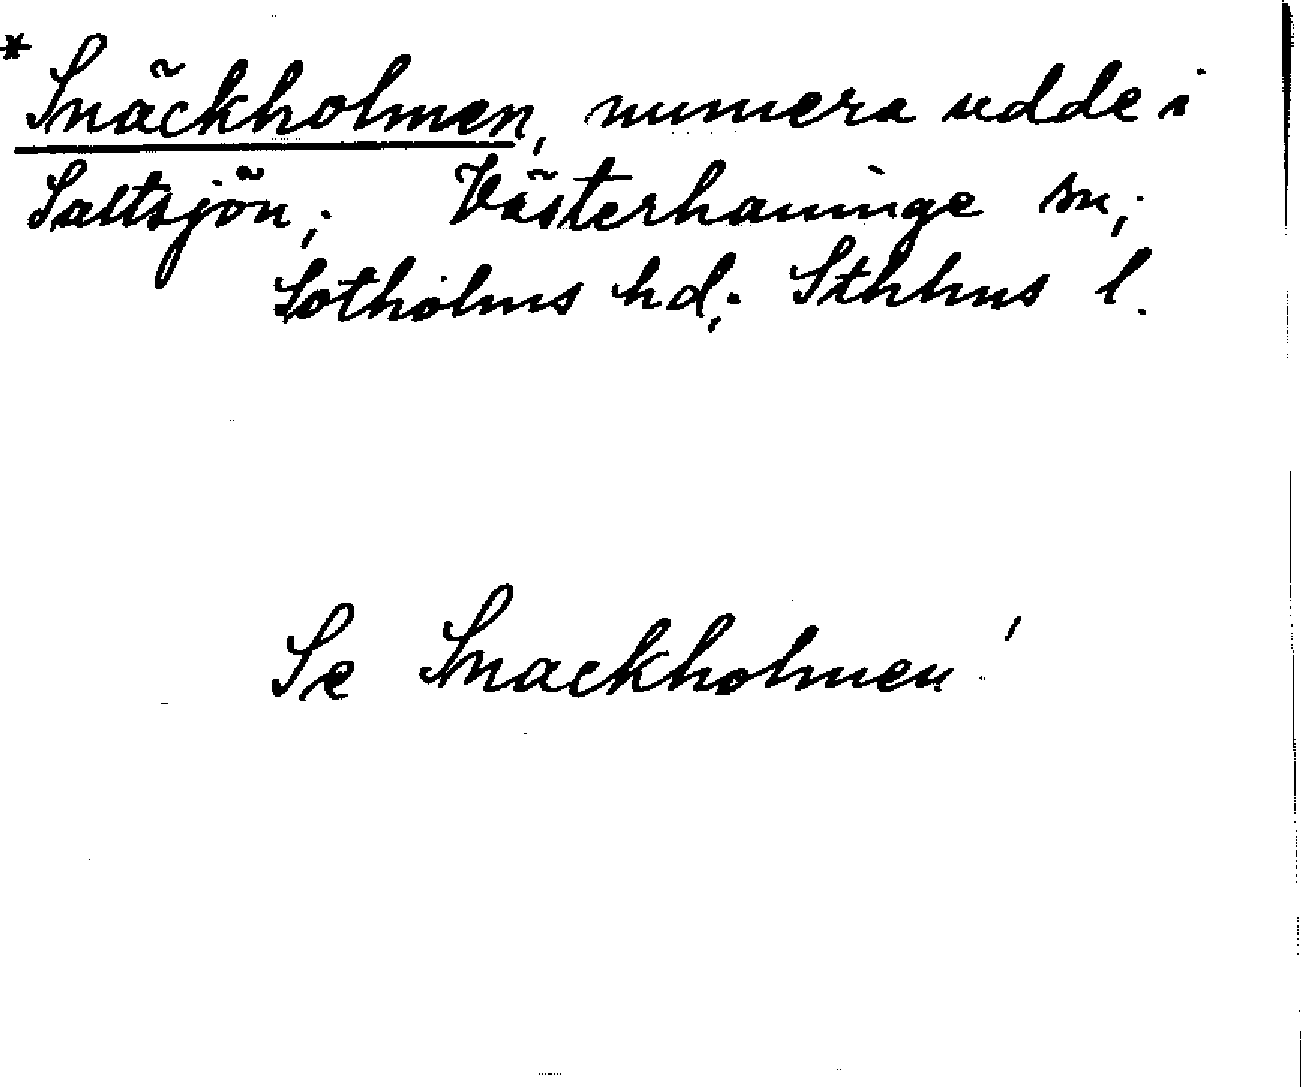 * Snäckholmen, numera udde i
Saltsjön; Västerhaninge sn;
Sotholms hd; Sthlms l.
Se Snackholmen!